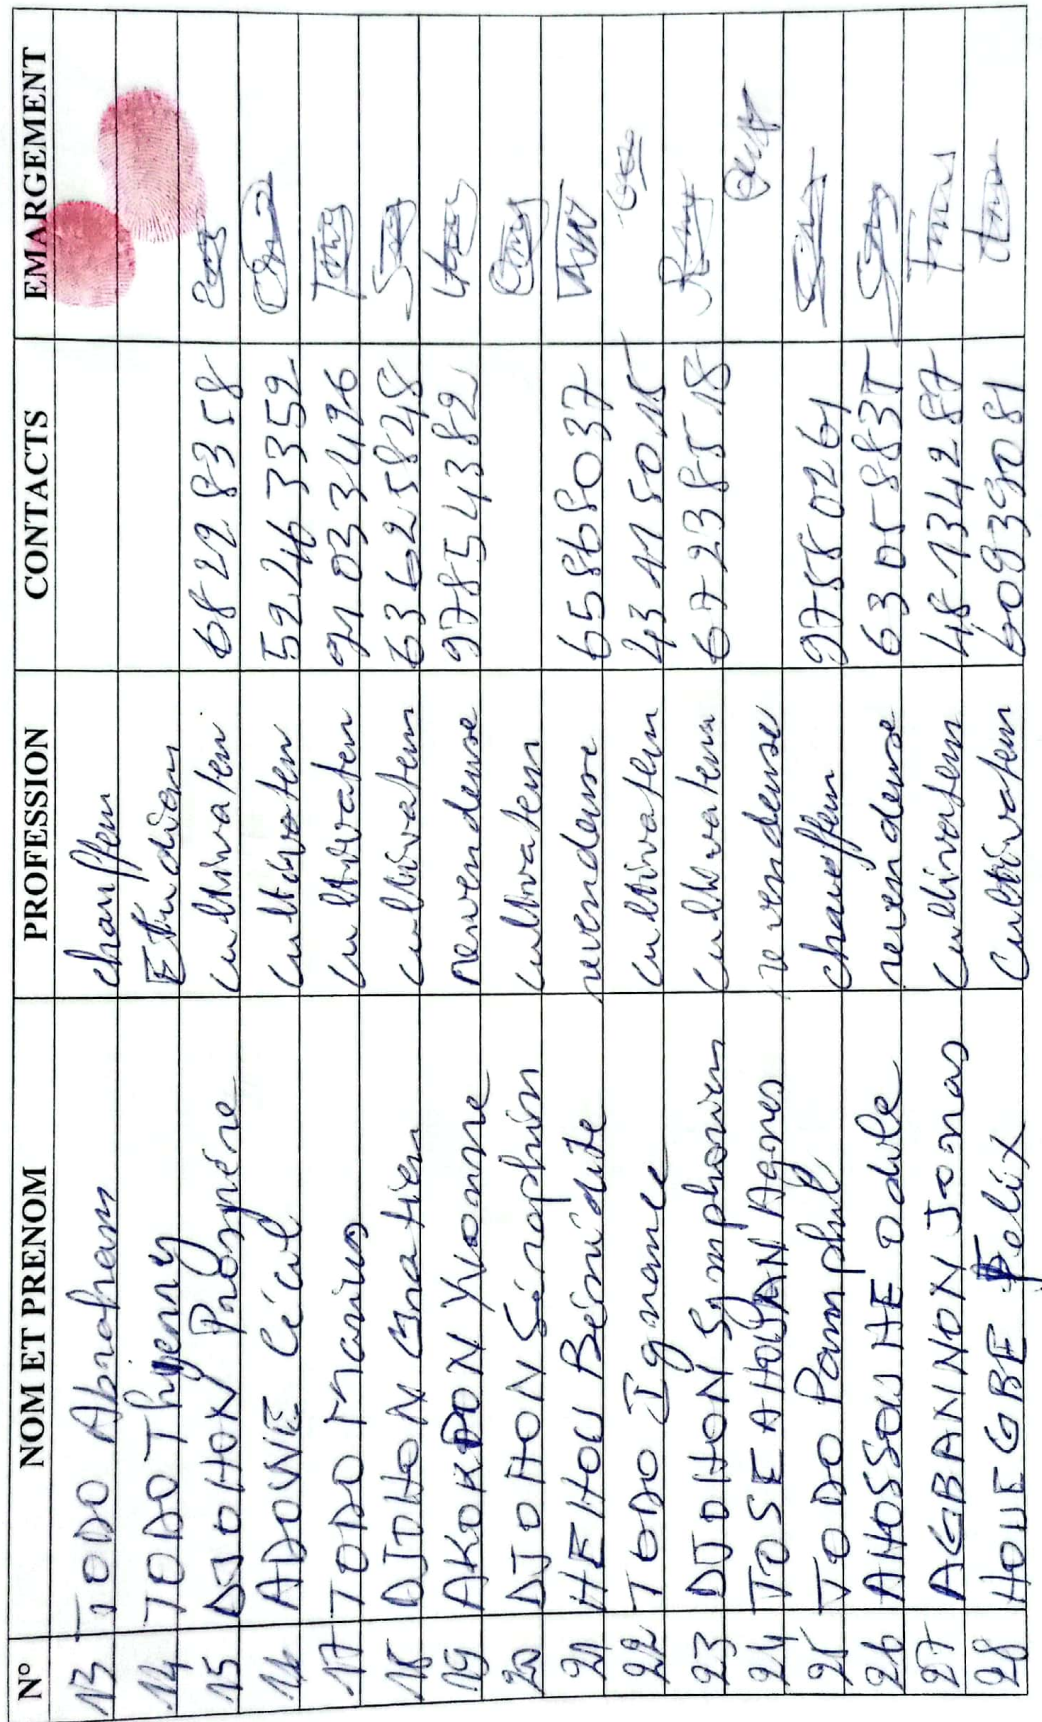 N° NOM ET PRENOM PROFESSION CONTACTS EMARGEMENT
13 TODO Abraham chauffeur
14 TODO Thyerry Etudiem
15 DJOHON Prosynére cultivateur 68 22 83 58
16 ADOWE Cécul cultivateur 52 46 33 52
17 TODO Marius cultivateur 91 03 34 96
18 DJOHON Gratien cultivateur 63 62 58 48
19 AKOKPON Yvonne revendeuse 97 85 43 82
20 DJOHON Séraphin cultivateur
21 HEHOU Bénédite revendeuse 65 86 80 37
22 TODO Ignance cultivateur 43 41 50 15
23 DJOHON Symphorien cultivateur 67 23 85 18
24 TOSE AHOUAN Agnes revendeuse
25 TODO Pamphil chaueffeur 97 55 02 61
26 AHOSSOU HE Odile revendeuse 63 05 88 35
27 AGBANNON Jonas cultivateur 48 13 42 87
28 HOUEGBE Felix cultivateur 60 93 90 81